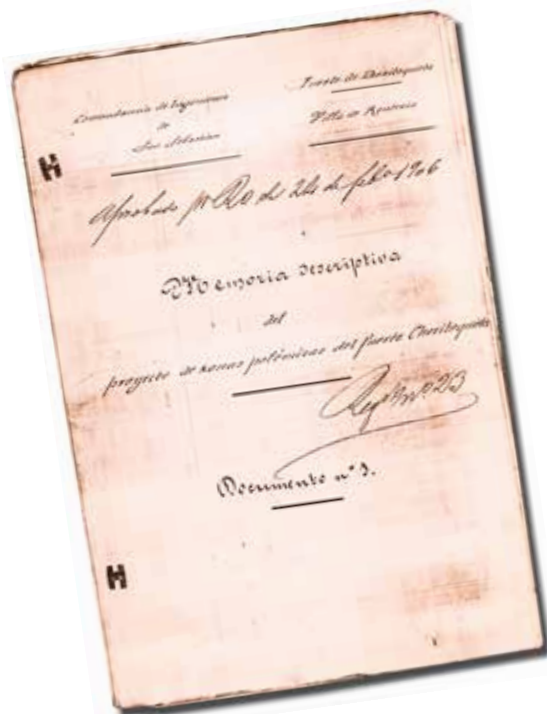 Comandancia de Ingenieros
de
San Sebastián
Fuerte de Choritoquieta
Villa de Rentería
H
Aprobado por RO de 24 de feb.o 1906
Memoria descriptiva
del
proyecto de zonas polémicas del fuerte Choritoquieta
Regº nº 23
Documento nº 1.
H